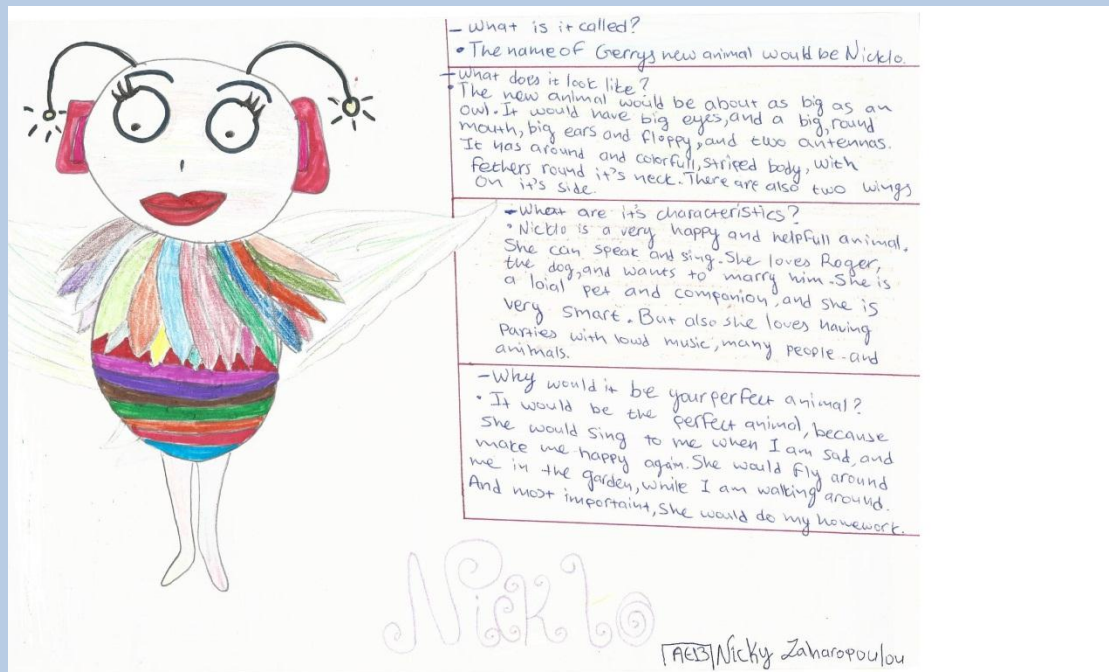 - What is it called?
• The name of Gerrys new animal would be Nicklo.
- What does it look like?
• The new animal would be about as big as an
owl. It would have big eyes, and a big, round
mouth, big ears and floppy, and two antennas.
It has around and colorfull, striped body, with
fethers round it's neck. There are also two wings
on it's side.
- What are it's characteristics?
• Nicklo is a very happy and helpfull animal.
She can speak and sing. She loves Roger,
the dog, and wants to marry him. She is
a loial pet and companion, and she is
very smart. But also she loves having
parties with loud music, many people and
animals.
- Why would it be your perfect animal?
• It would be the perfect animal, because
she would sing to me when I am sad, and
make me happy again. She would fly around
me in the garden, while I am walking around.
And most importaint, she would do my homework.
Nicklo
AEB Nicky Zaharopoulou